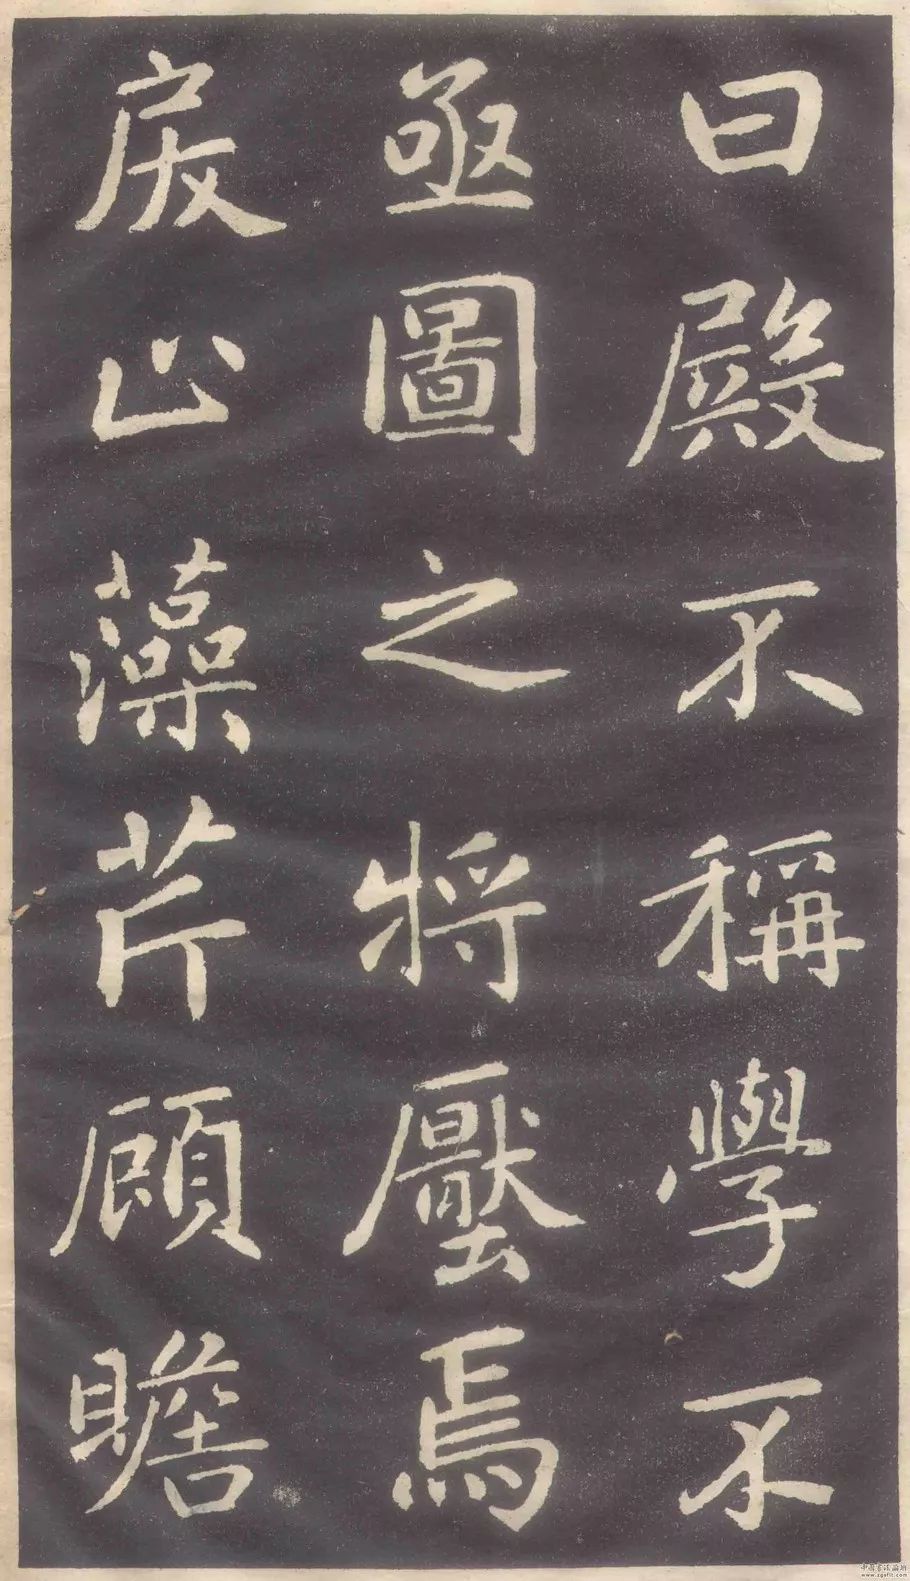 曰殿不稱學不
亟圖之將壓焉
戾止藻芹顧瞻
中國書法論壇
www.zgsflt.com